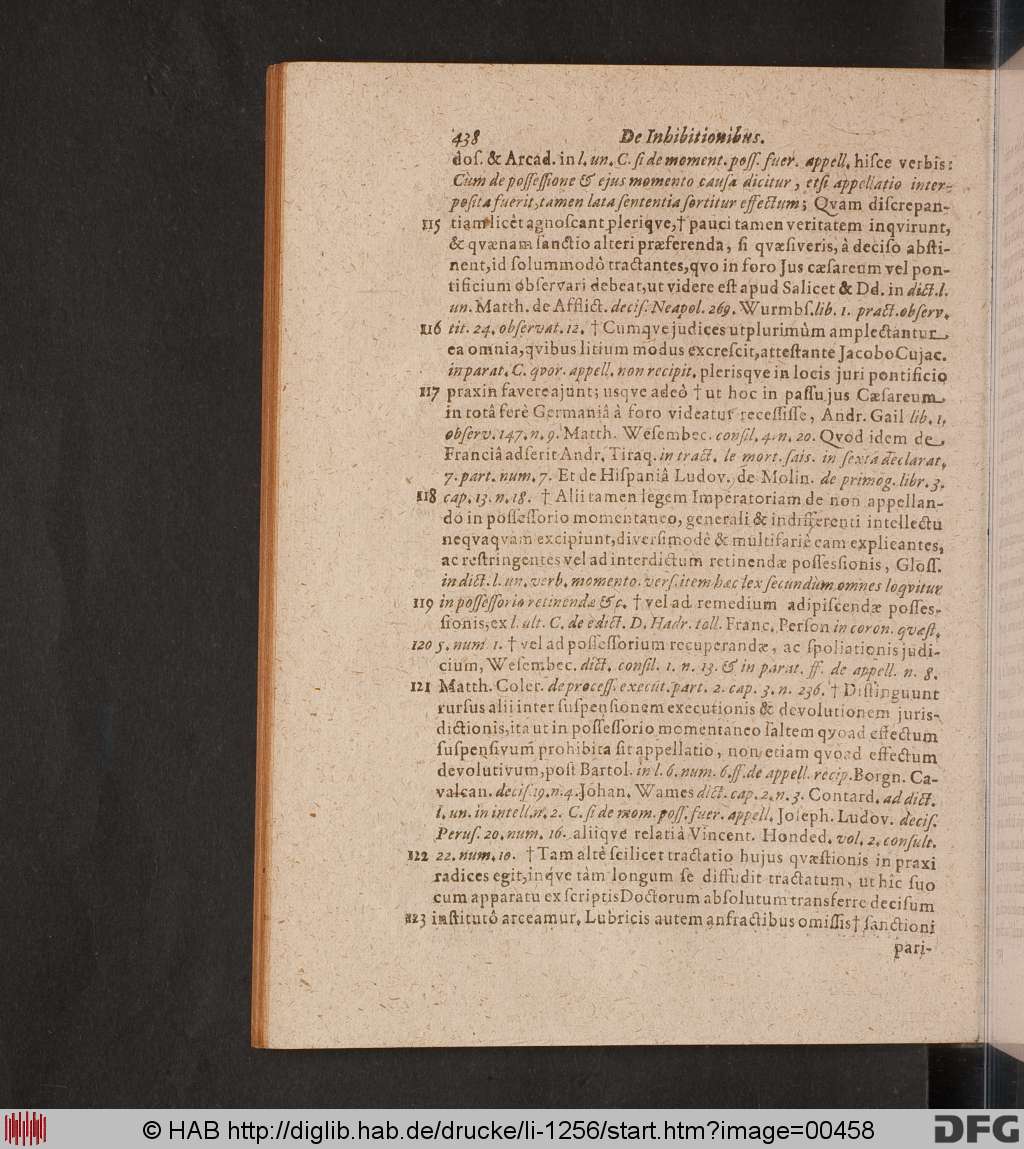 438 De Inhibitionibus.
dos. & Arcad. in l. un. C. si de moment. poss. fuer. appell. hisce verbis:
Cùm de possessione & ejus momento causa dicitur, etsi appellatio inter-
posita fuerit, tamen lata sententia sortitur effectum; Qvam discrepan-
115 tiam licèt agnoscant pleriqve, † pauci tamen veritatem inqvirunt,
& qvænam sanctio alteri præferenda, si qvæsiveris, à deciso absti-
nent, id solummodò tractantes, qvo in foro Jus cæsareum vel pon-
tificium observari debeat, ut videre est apud Salicet & Dd. in dict. l.
un. Matth. de Afflict. decis. Neapol. 269. Wurmbs. lib. 1. pract. observ.
116 tit. 24. observat. 12. † Cumqve judices utplurimùm amplectantur
ea omnia, qvibus litium modus excrescit, attestante Jacobo Cujac.
in parat. C. qvor. appell. non recipit. plerisqve in locis juri pontificio
117 praxin favere ajunt; usqve adeò † ut hoc in passu jus Cæsareum
in totâ ferè Germaniâ à foro videatur recessisse, Andr. Gail lib. 1.
observ. 147. n. 9. Matth. Wesembec. consil. 4. n. 20. Qvod idem de
Franciâ adserit Andr. Tiraq. in tract. le mort. sais. in sexta declarat.
7. part. num. 7. Et de Hispaniâ Ludov. de Molin. de primog. libr. 3.
118 cap. 13. n. 18. † Alii tamen legem Imperatoriam de non appellan-
do in possessorio momentaneo, generali & indifferenti intellectu
neqvaqvam excipiunt, diversimodè & multifariè eam explicantes,
ac restringentes vel ad interdictum retinendæ possessionis, Gloss.
in dict. l. un. verb. momento. vers. item hæc lex secundùm omnes loqvitur
119 in possessorio retinendæ &c. † vel ad remedium adipiscendæ posses-
sionis, ex l. ult. C. de edict. D. Hadr. toll. Franc. Person in coron. qvæst.
120 5. num 1. † vel ad possessorium recuperandæ, ac spoliationis judi-
cium, Wesembec. dict. consil. 1. n. 13. & in parat. ff. de appell. n. 8.
121 Matth. Coler. de process. execut. part. 2. cap. 3. n. 236. † Distinguunt
rursus alii inter suspensionem executionis & devolutionem juris-
dictionis, ita ut in possessorio momentaneo saltem qvoad effectum
suspensivum prohibita sit appellatio, non etiam qvoad effectum
devolutivum, post Bartol. in l. 6. num. 6. ff. de appell. recip. Borgn. Ca-
valcan. decis. 19. n. 4. Johan. Wames dict. cap. 2. n. 3. Contard. ad dict.
l. un. in intell. n. 2. C. si de mom. poss. fuer. appell. Joseph. Ludov. decis.
Perus. 20. num. 16. aliiqve relati à Vincent. Honded. vol. 2. consult.
122 22. num. 10. † Tam altè scilicet tractatio hujus qvæstionis in praxi
radices egit, inqve tàm longum se diffudit tractatum, ut hîc suo
cum apparatu ex scriptis Doctorum absolutum transferre decisum
123 institutô arceamur. Lubricis autem anfractibus omissis † sanctioni
pari-
© HAB http://diglib.hab.de/drucke/li-1256/start.htm?image=00458
DFG